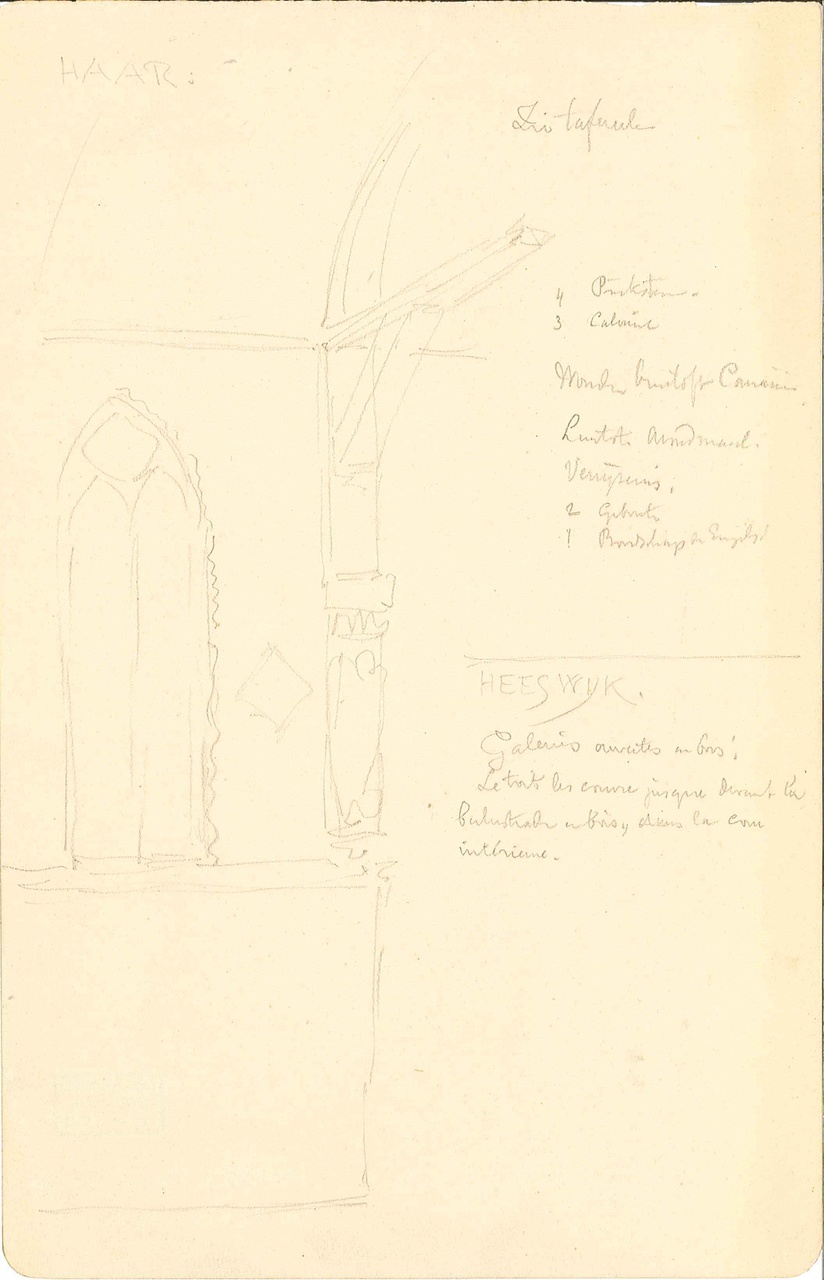 HAAR:
tafereelen
4 Pinksteren
3 Calvarie
Wonder bruiloft
Avondmaal.
Verrijzenis,
2 Geboorte
1 Boodschap
HEESWIJK.
Galeries ouvertes en bois;
Le toit les couvre jusque devant la
balustrade en bois, dans la cour
intérieure.